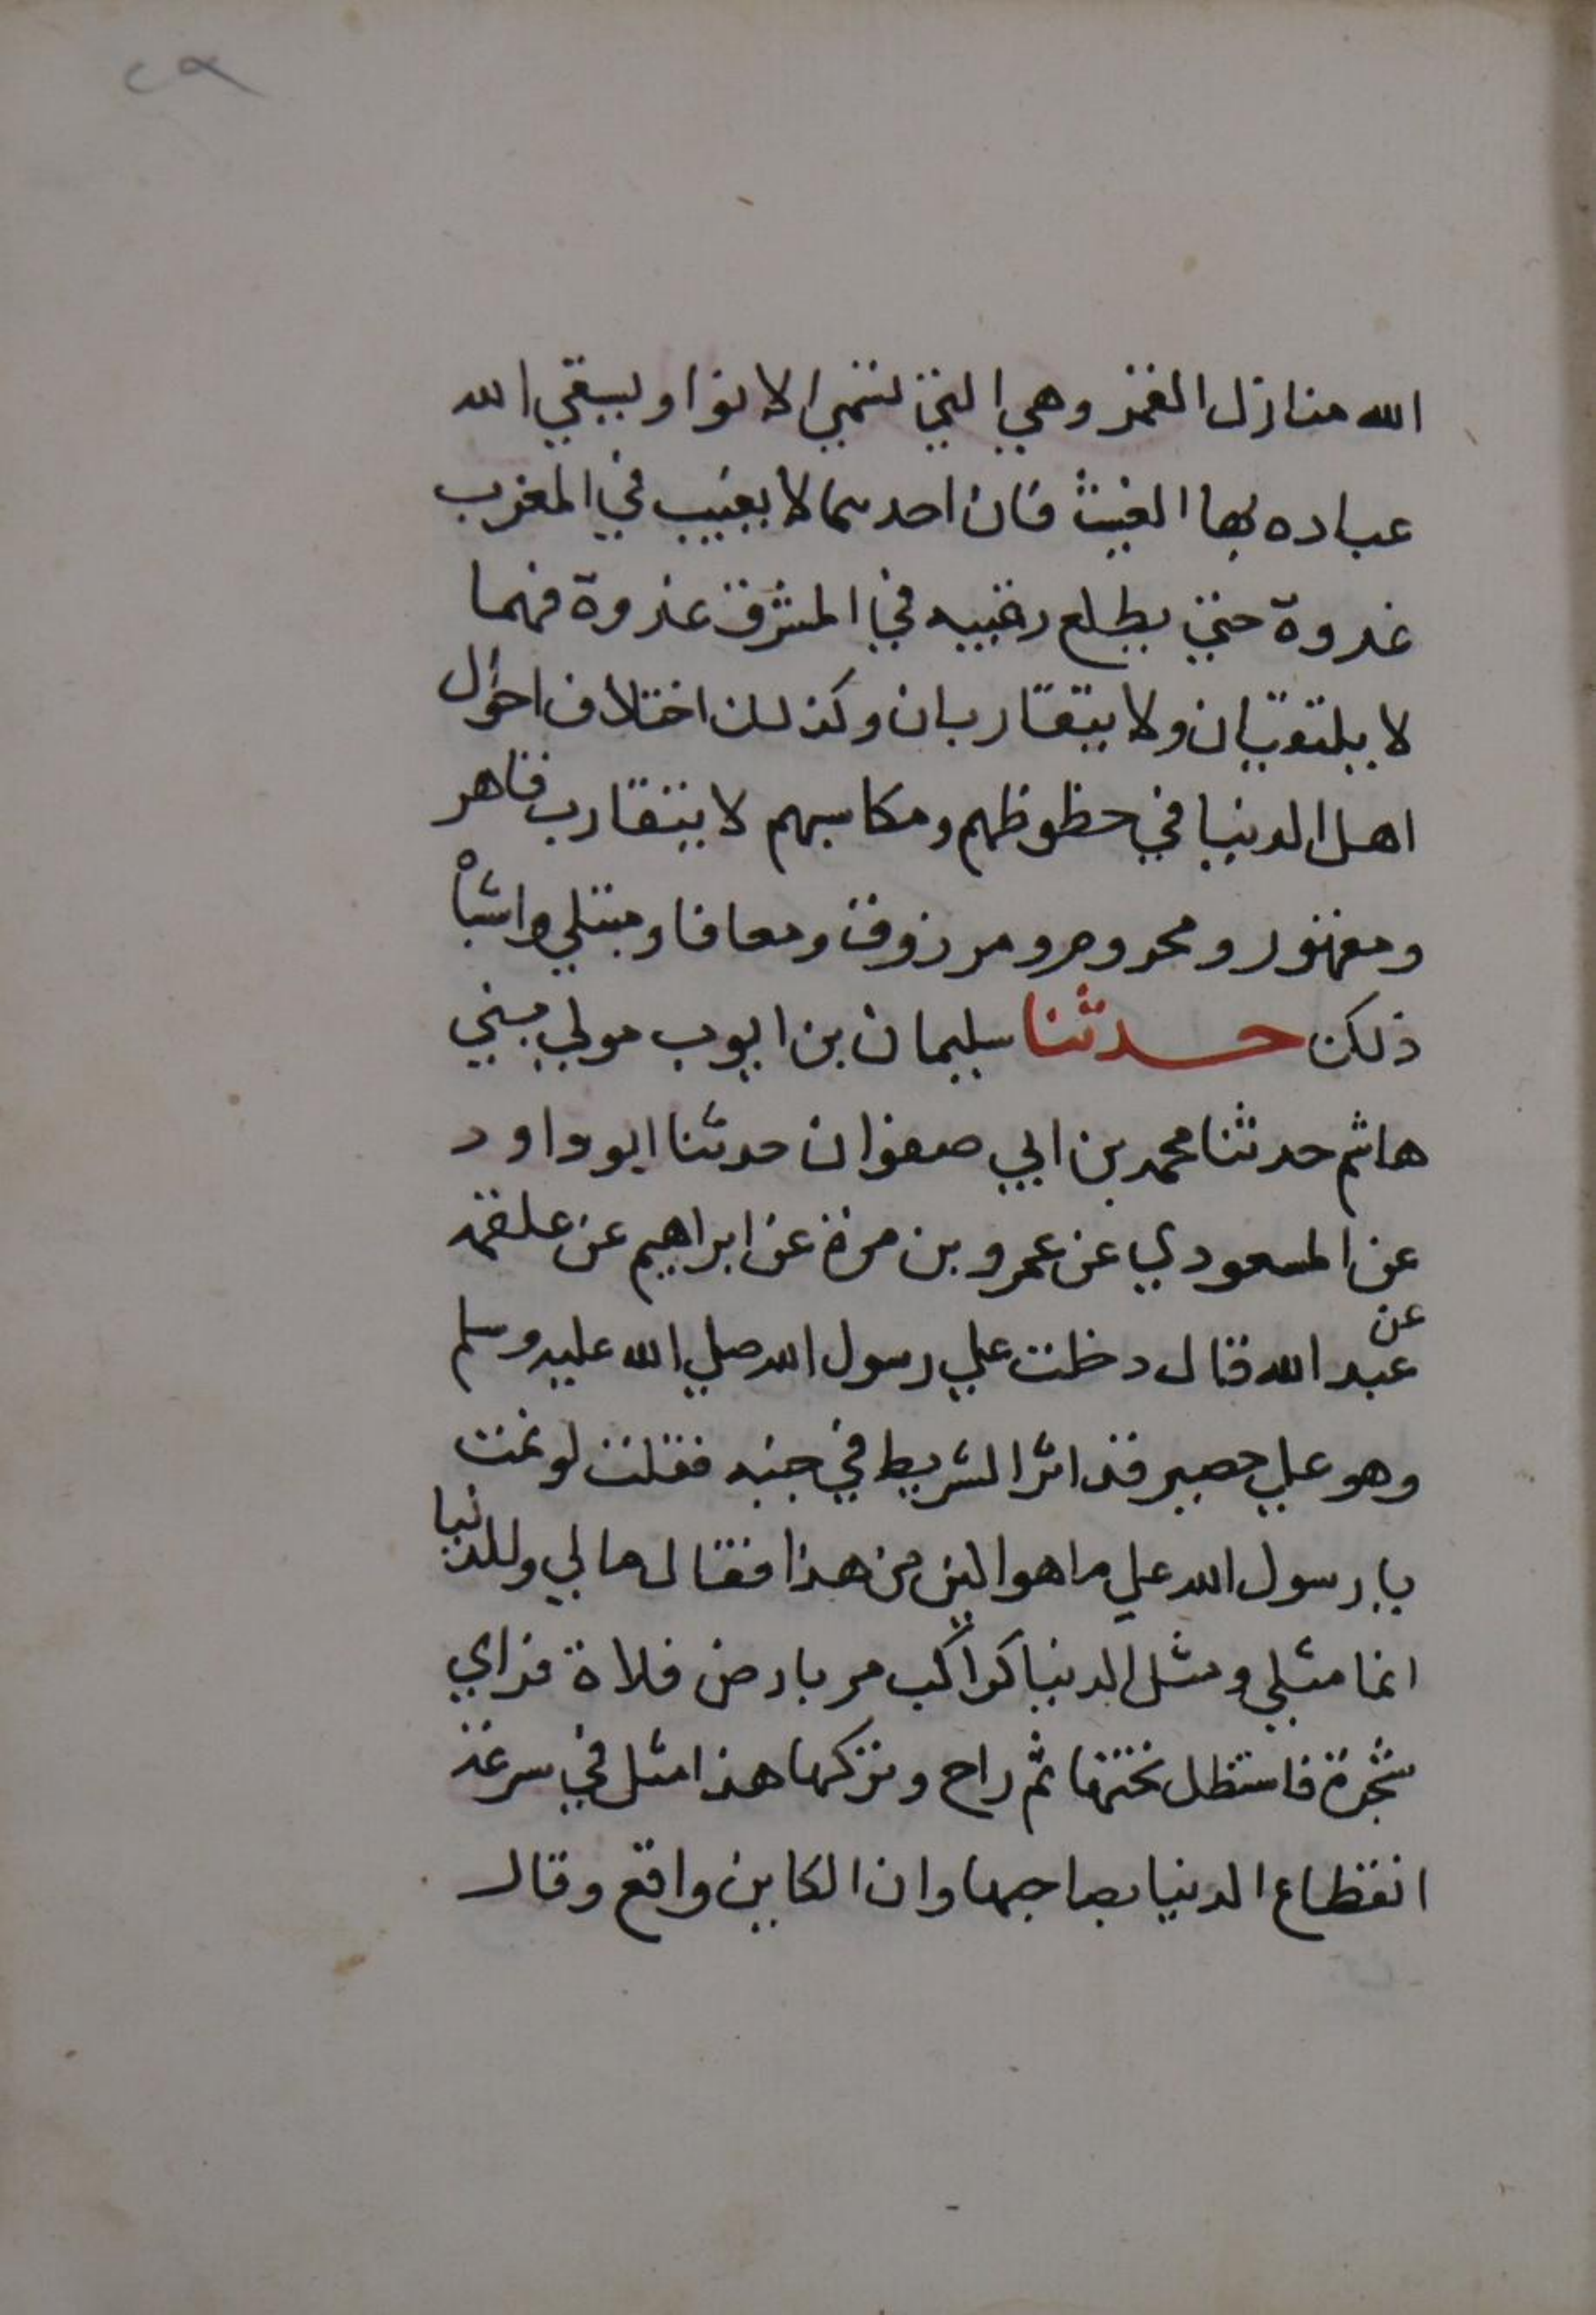 ٢٩
الله منازل القمر وهي التي تسمي الانوا ويسقي الله
عباده بها الغيث فان احدهما لا يغيب في المغرب
غدوة حتي يطلع رقيبه في المشرق غدوة فهما
لا يلتقيان ولا يتقاربان وكذلك اختلاف احوال
اهل الدنيا في حظوظهم ومكاسبهم لا يتقارب قاهر
ومقهور ومحروم ومرزوق ومعافا ومبتلي واشباه
ذلك حدثنا سليمان بن ايوب مولي بني
هاشم حدثنا محمد بن ابي صفوان حدثنا ابو داود
عن المسعودي عن عمرو بن مرة عن ابراهيم عن علقمة
عن عبد الله قال دخلت علي رسول الله صلي الله عليه وسلم
وهو علي حصير قد اثر الشريط في جنبه فقلت لو نمت
يا رسول الله علي ما هو الين من هذا فقال ما لي وللدنيا
انما مثلي ومثل الدنيا كراكب مر بارض فلاة فراي
شجرة فاستظل تحتها ثم راح وتركها هذا مثل في سرعة
انقطاع الدنيا بصاحبها وان الكاين واقع وقال